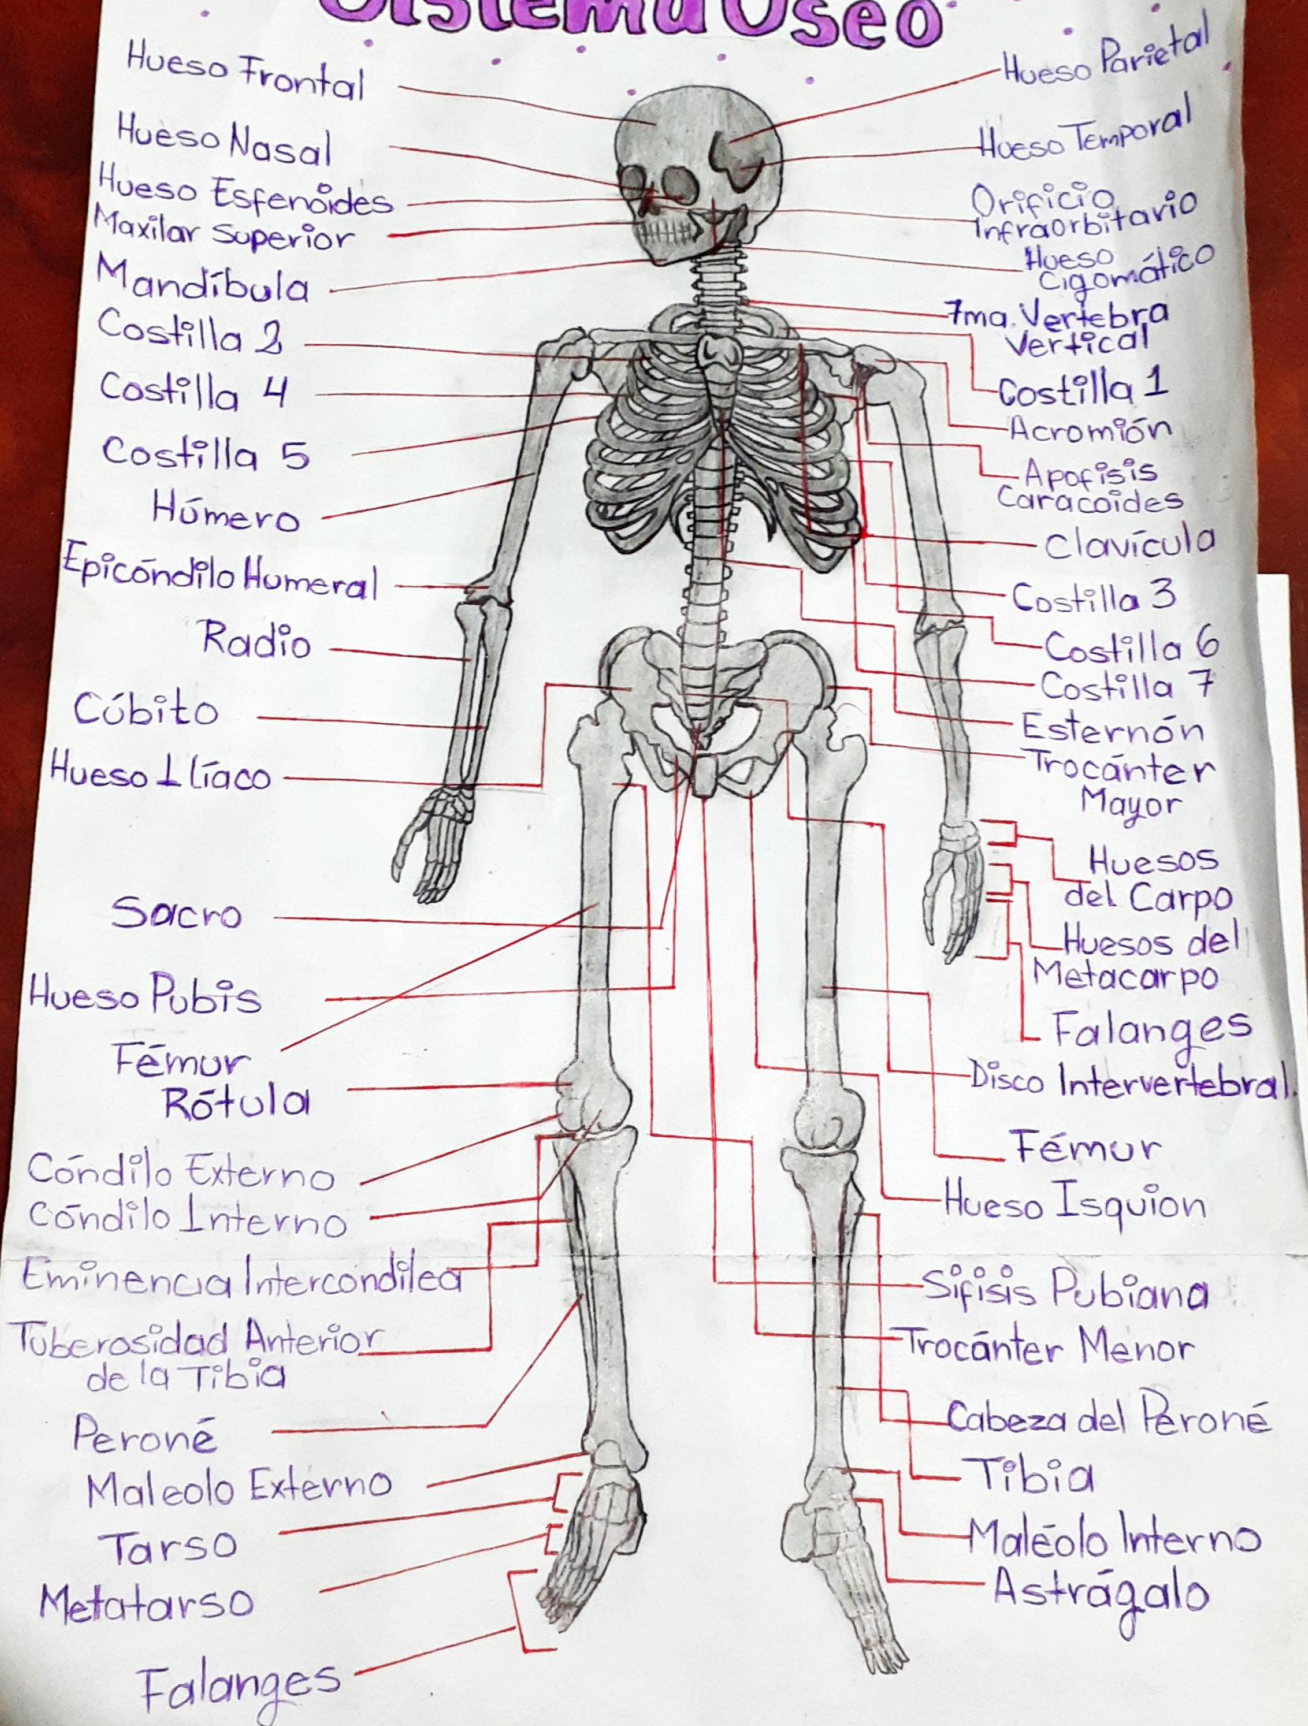 Sistema Oseo
Hueso Frontal
Hueso Nasal
Hueso Esfenóides
Maxilar Superior
Mandíbula
Costilla 2
Costilla 4
Costilla 5
Húmero
Epicóndilo Humeral
Radio
Cúbito
Hueso Ilíaco
Sacro
Hueso Pubis
Fémur
Rótula
Cóndilo Externo
Cóndilo Interno
Eminencia Intercondilea
Tuberosidad Anterior
de la Tibia
Peroné
Maleolo Externo
Tarso
Metatarso
Falanges
Hueso Parietal
Hueso Temporal
Orificio
Infraorbitario
Hueso
Cigomático
7ma. Vertebra
Vertical
Costilla 1
Acromión
Apofisis
Caracoides
Clavícula
Costilla 3
Costilla 6
Costilla 7
Esternón
Trocánter
Mayor
Huesos
del Carpo
Huesos del
Metacarpo
Falanges
Disco Intervertebral.
Fémur
Hueso Isquion
Sifisis Pubiana
Trocánter Menor
Cabeza del Peroné
Tibia
Maléolo Interno
Astrágalo